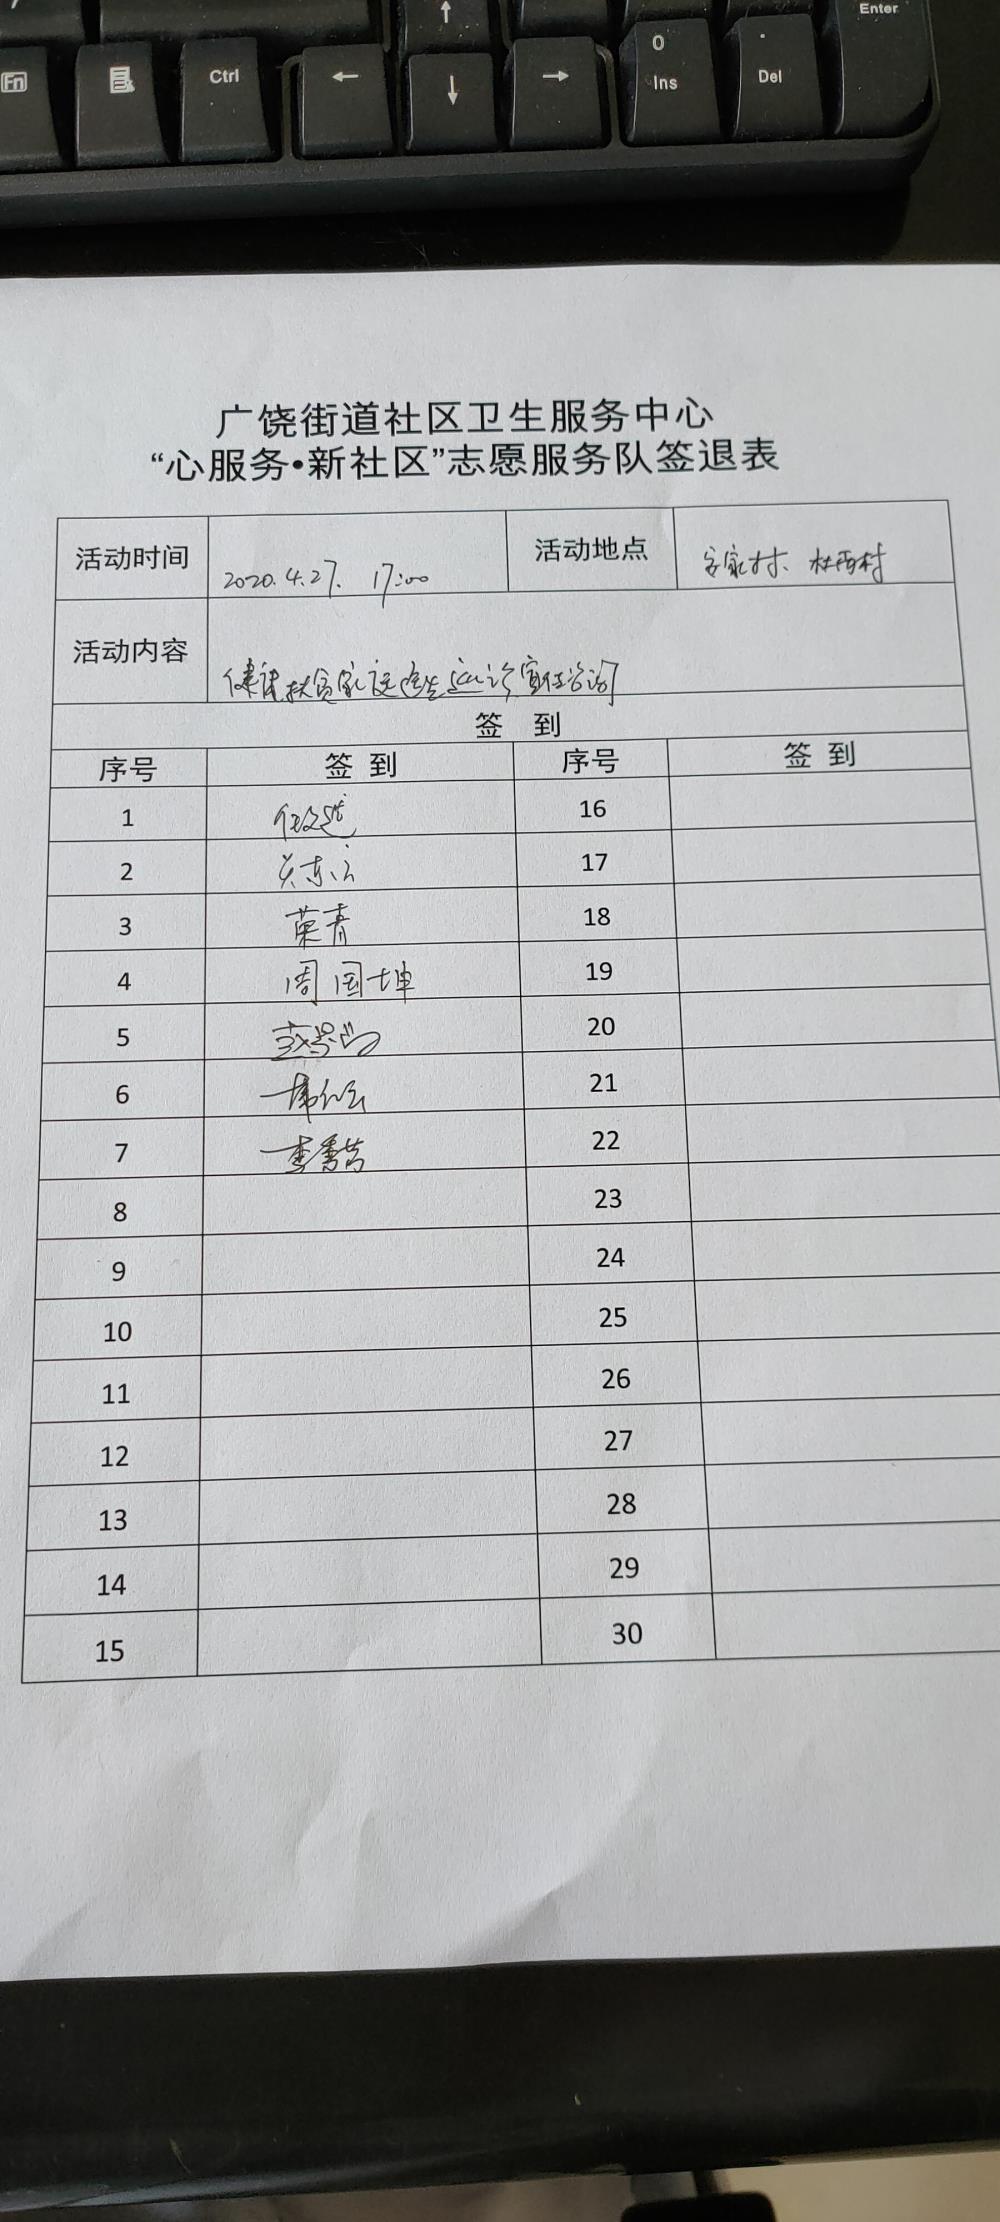 Enter
Fn
Ctrl
←
↑
↓
→
0
Ins
.
Del
广饶街道社区卫生服务中心
“心服务•新社区”志愿服务队签退表
活动时间 2020.4.27. 17:00 活动地点 家村、杜西村
活动内容 健康扶贫家庭医生巡诊宣传咨询
签 到
序号 签 到 序号 签 到
1 16
2 17
3 青 18
4 周国坤 19
5 20
6 21
7 李秀芳 22
8 23
9 24
10 25
11 26
12 27
13 28
14 29
15 30